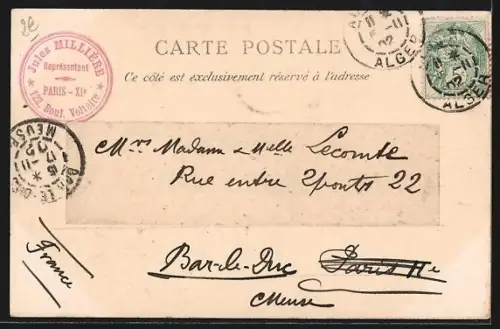 2e
Jules MILLIÈRE
Représentant
PARIS - XIe
122, Boul. Voltaire
CARTE POSTALE
Ce côté est exclusivement réservé à l'adresse
ALGER
02
ALGER
BAR-LE-DUC
MEUSE
Mrs Madame & Melle Lecomte
Rue entre 2 ponts 22
Bar-le-Duc Paris 11e
Meuse
France